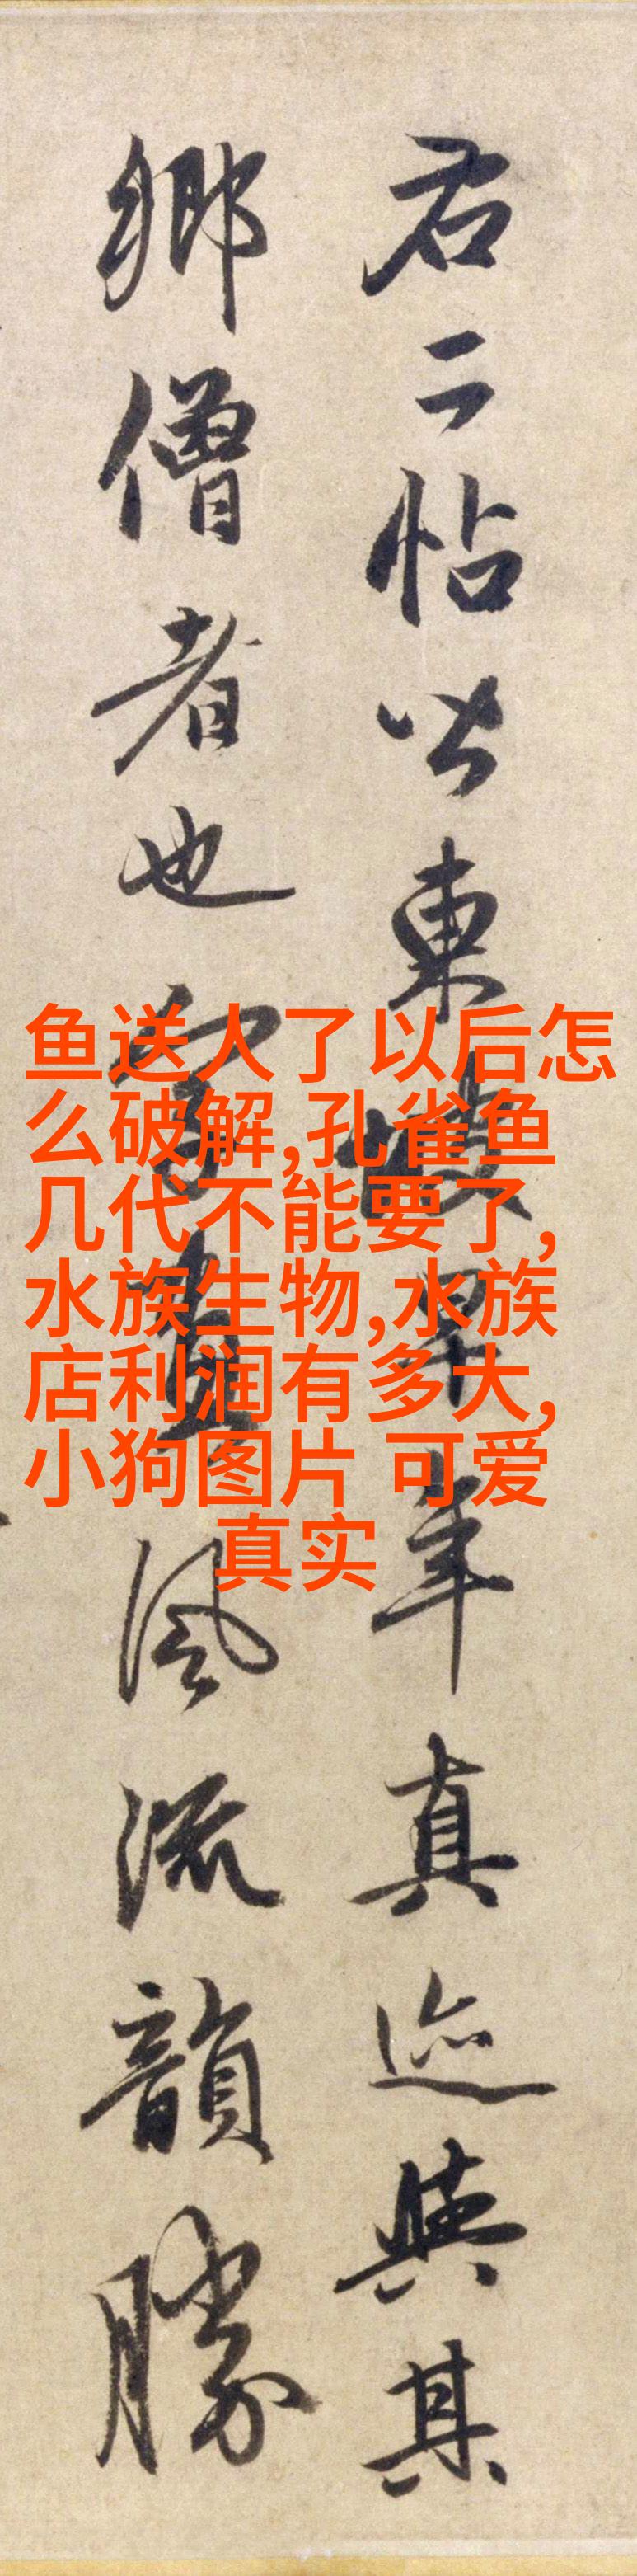 右二帖皆東坡早年真迹與其
鄉僧者也字畫風流韻勝
鱼送人了以后怎
么破解,孔雀鱼
几代不能要了,
水族生物,水族
店利润有多大,
小狗图片 可爱
真实